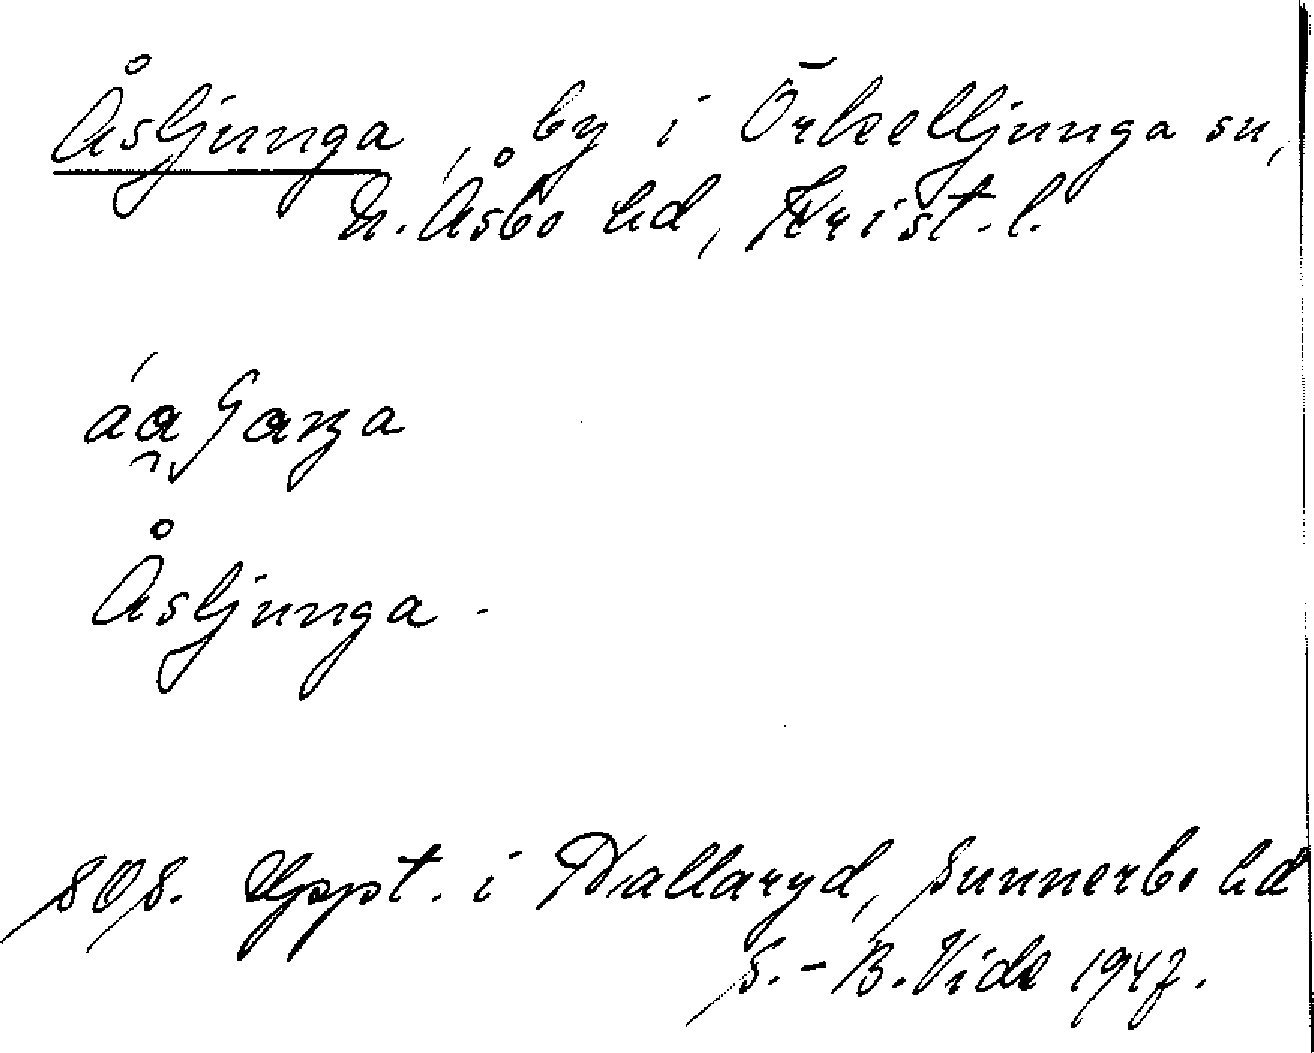 Åsljunga, by i Örkelljunga sn,
N. Åsbo hd, Krist. l.
Åsljunga -
SOS. Uppt. i Hallaryd, Sunnerbo hd
S.-B. Vide 1947.